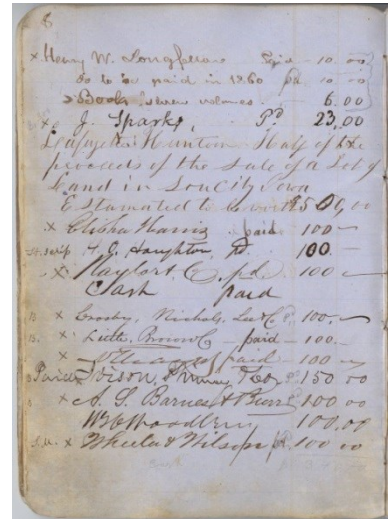 8
x Henry W. Longfellow Paid 10.00
do to be paid in 1860 pd 10.00
Books volumes 6.00
x J. Sparks, Pd 23,00
Lafayette Hunton Half of the
proceeds of the sale of a Lot of
Land in City Iowa
Estamated to be worth $500,00
x Elisha Harris paid 100 —
scrip H. O. Houghton, Pd 100.
x Naylor & C. pd. 100 —
Cash paid
B x Crosby, Nichols, Lee & Co 100. —
B. x Little, Brown & C — paid — 100. —
x paid 100 —
Paid Ivison, Phinney & Co pd 150 00
x A. S. Barnes & Burr pd 100 00
100.00
x Wheeler & Wilson pd 100 00